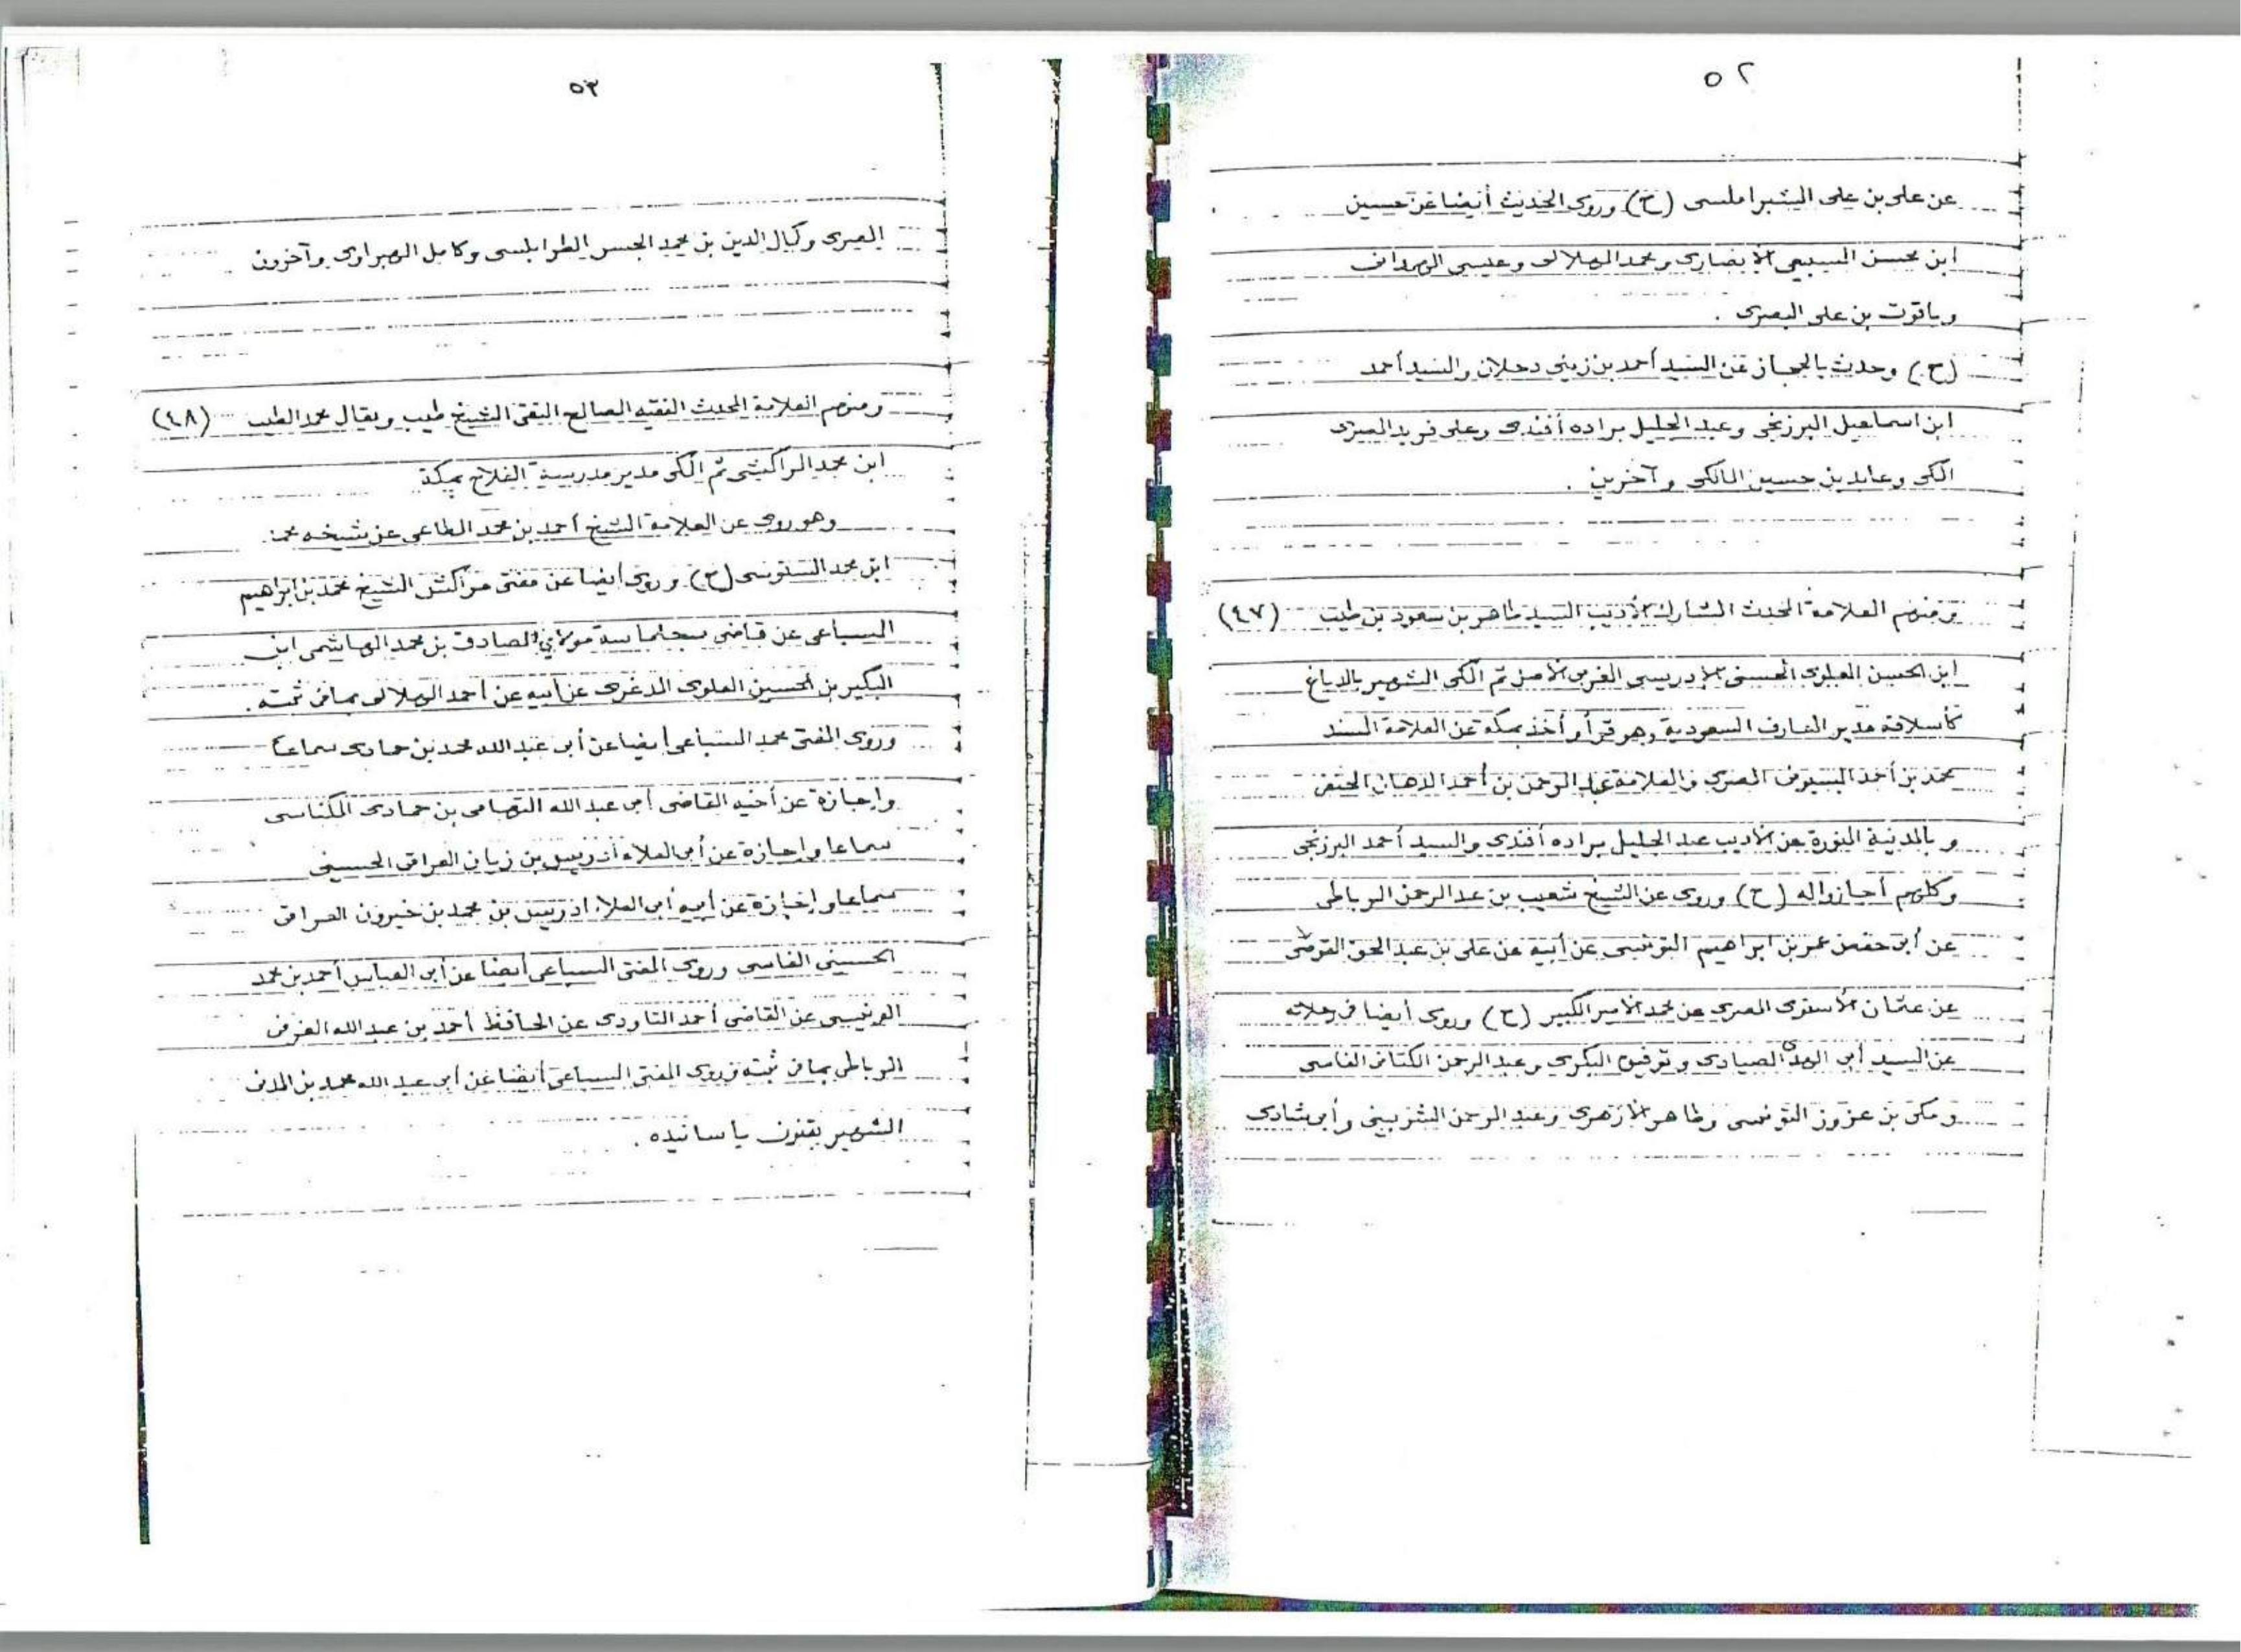 ٥٢
عن على بن على الشبراملسى (ح) وروى الحديث أيضا عن حسين
ابن محسن السبيعى الأنصارى ومحمد الهلالى وعيسى
وياقوت بن على البصرى .
(ح) وحدث بالحجاز عن السيد أحمد بن زينى دحلان والسيد أحمد
ابن اسماعيل البرزنجى وعبد الجليل براده أفندى وعلى فريد المصرى
المكى وعابد بن حسين المالكى وآخرين .
ومنهم العلامة المحدث المشارك الأديب السيد طاهر بن سعود بن طيب (٤٧)
ابن الحسن العلوى الحسنى الإدريسى المغربى الأصل ثم المكى الشهير بالدباغ
كأسلافه مدير المعارف السعودية وهو قرأ وأخذ بمكة عن العلامة المسند
محمد بن أحمد البسيونى المصرى والعلامة عبد الرحمن بن أحمد الدهان الحنفى
وبالمدينة المنورة عن الأديب عبد الجليل براده أفندى والسيد أحمد البرزنجى
وكلهم أجازوا له (ح) وروى عن الشيخ شعيب بن عبد الرحمن الرباطى
عن أبى حفص عمر بن ابراهيم التونسى عن أبيه عن على بن عبد الحق القوصى
عن عثمان الأستوى المصرى عن محمد الأمير الكبير (ح) وروى أيضا فى رحلاته
عن السيد أبى الهدى الصيادى وتوفيق البكرى وعبد الرحمن الكتانى الفاسى
ومكى بن عزوز التونسى وطاهر الأزهرى وعبد الرحمن الشربينى وأبى شادى
٥٣
المصرى وكمال الدين بن محمد الجسر الطرابلسى وكامل الهبراوى وآخرون
ومنهم العلامة المحدث الفقيه الصالح التقى الشيخ طيب ويقال محمد الطيب (٤٨)
ابن محمد المراكشى ثم المكى مدير مدرسة الفلاح بمكة
وهو روى عن العلامة الشيخ أحمد بن محمد الطاعى عن شيخه محمد
ابن محمد السنوسى (ح) وروى أيضا عن مفتى مراكش الشيخ محمد بن ابراهيم
السباعى عن قاضى سجلماسة مولاي الصادق بن محمد الهاشمى ابن
البكير بن الحسين العلوى المدغرى عن أبيه عن أحمد الهلالى بما فى ثبته .
وروى المفتى محمد السباعى أيضا عن أبى عبد الله محمد بن حمادى سماعا
وإجازة عن أخيه القاضى أبى عبد الله التهامى بن حمادى المكناسى
سماعا وإجازة عن أبى العلاء أدريس بن زيان العراقى الحسينى
سماعا وإجازة عن أبيه أبى العلاء ادريس بن محمد بن خيرون العراقى
الحسينى الفاسى وروى المفتى السباعى أيضا عن أبى العباس أحمد بن محمد
المرنيسى عن القاضى أحمد التاودى عن الحافظ أحمد بن عبد الله الغربى
الرباطى بما فى ثبته وروى المفتى السباعى أيضا عن أبى عبد الله محمد بن المدنى
الشهير بقنون بأسانيده .